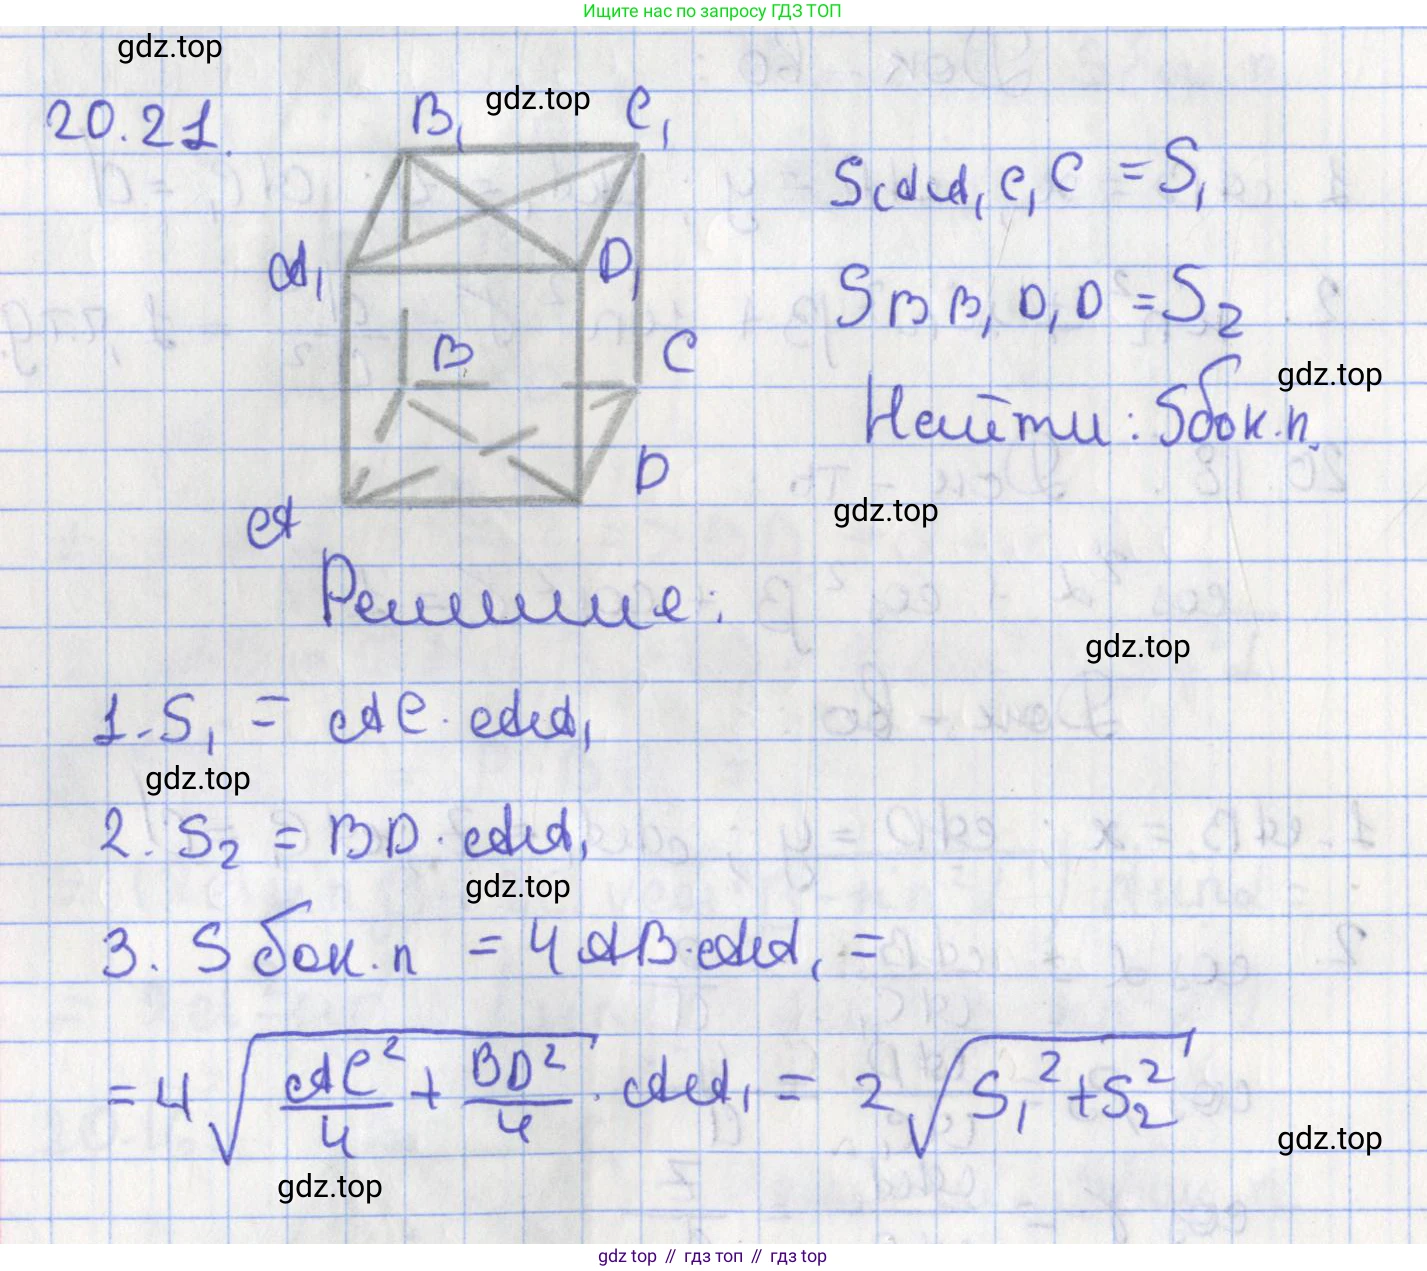 Ищите нас по запросу ГДЗ ТОП
gdz.top
20.21.
B₁ gdz.top C₁
S AA₁C₁C = S₁
A₁ D₁
S BB₁D₁D = S₂
B C
gdz.top
Найти: Sбок.п.
D
A
gdz.top
Решение:
gdz.top
1. S₁ = AC · AA₁
gdz.top
2. S₂ = BD · AA₁
gdz.top
3. S бок.п = 4 AB · AA₁ =
= 4 √(AC²/4 + BD²/4) · AA₁ = 2 √(S₁² + S₂²)
gdz.top
gdz.top
gdz top // гдз топ // гдз top